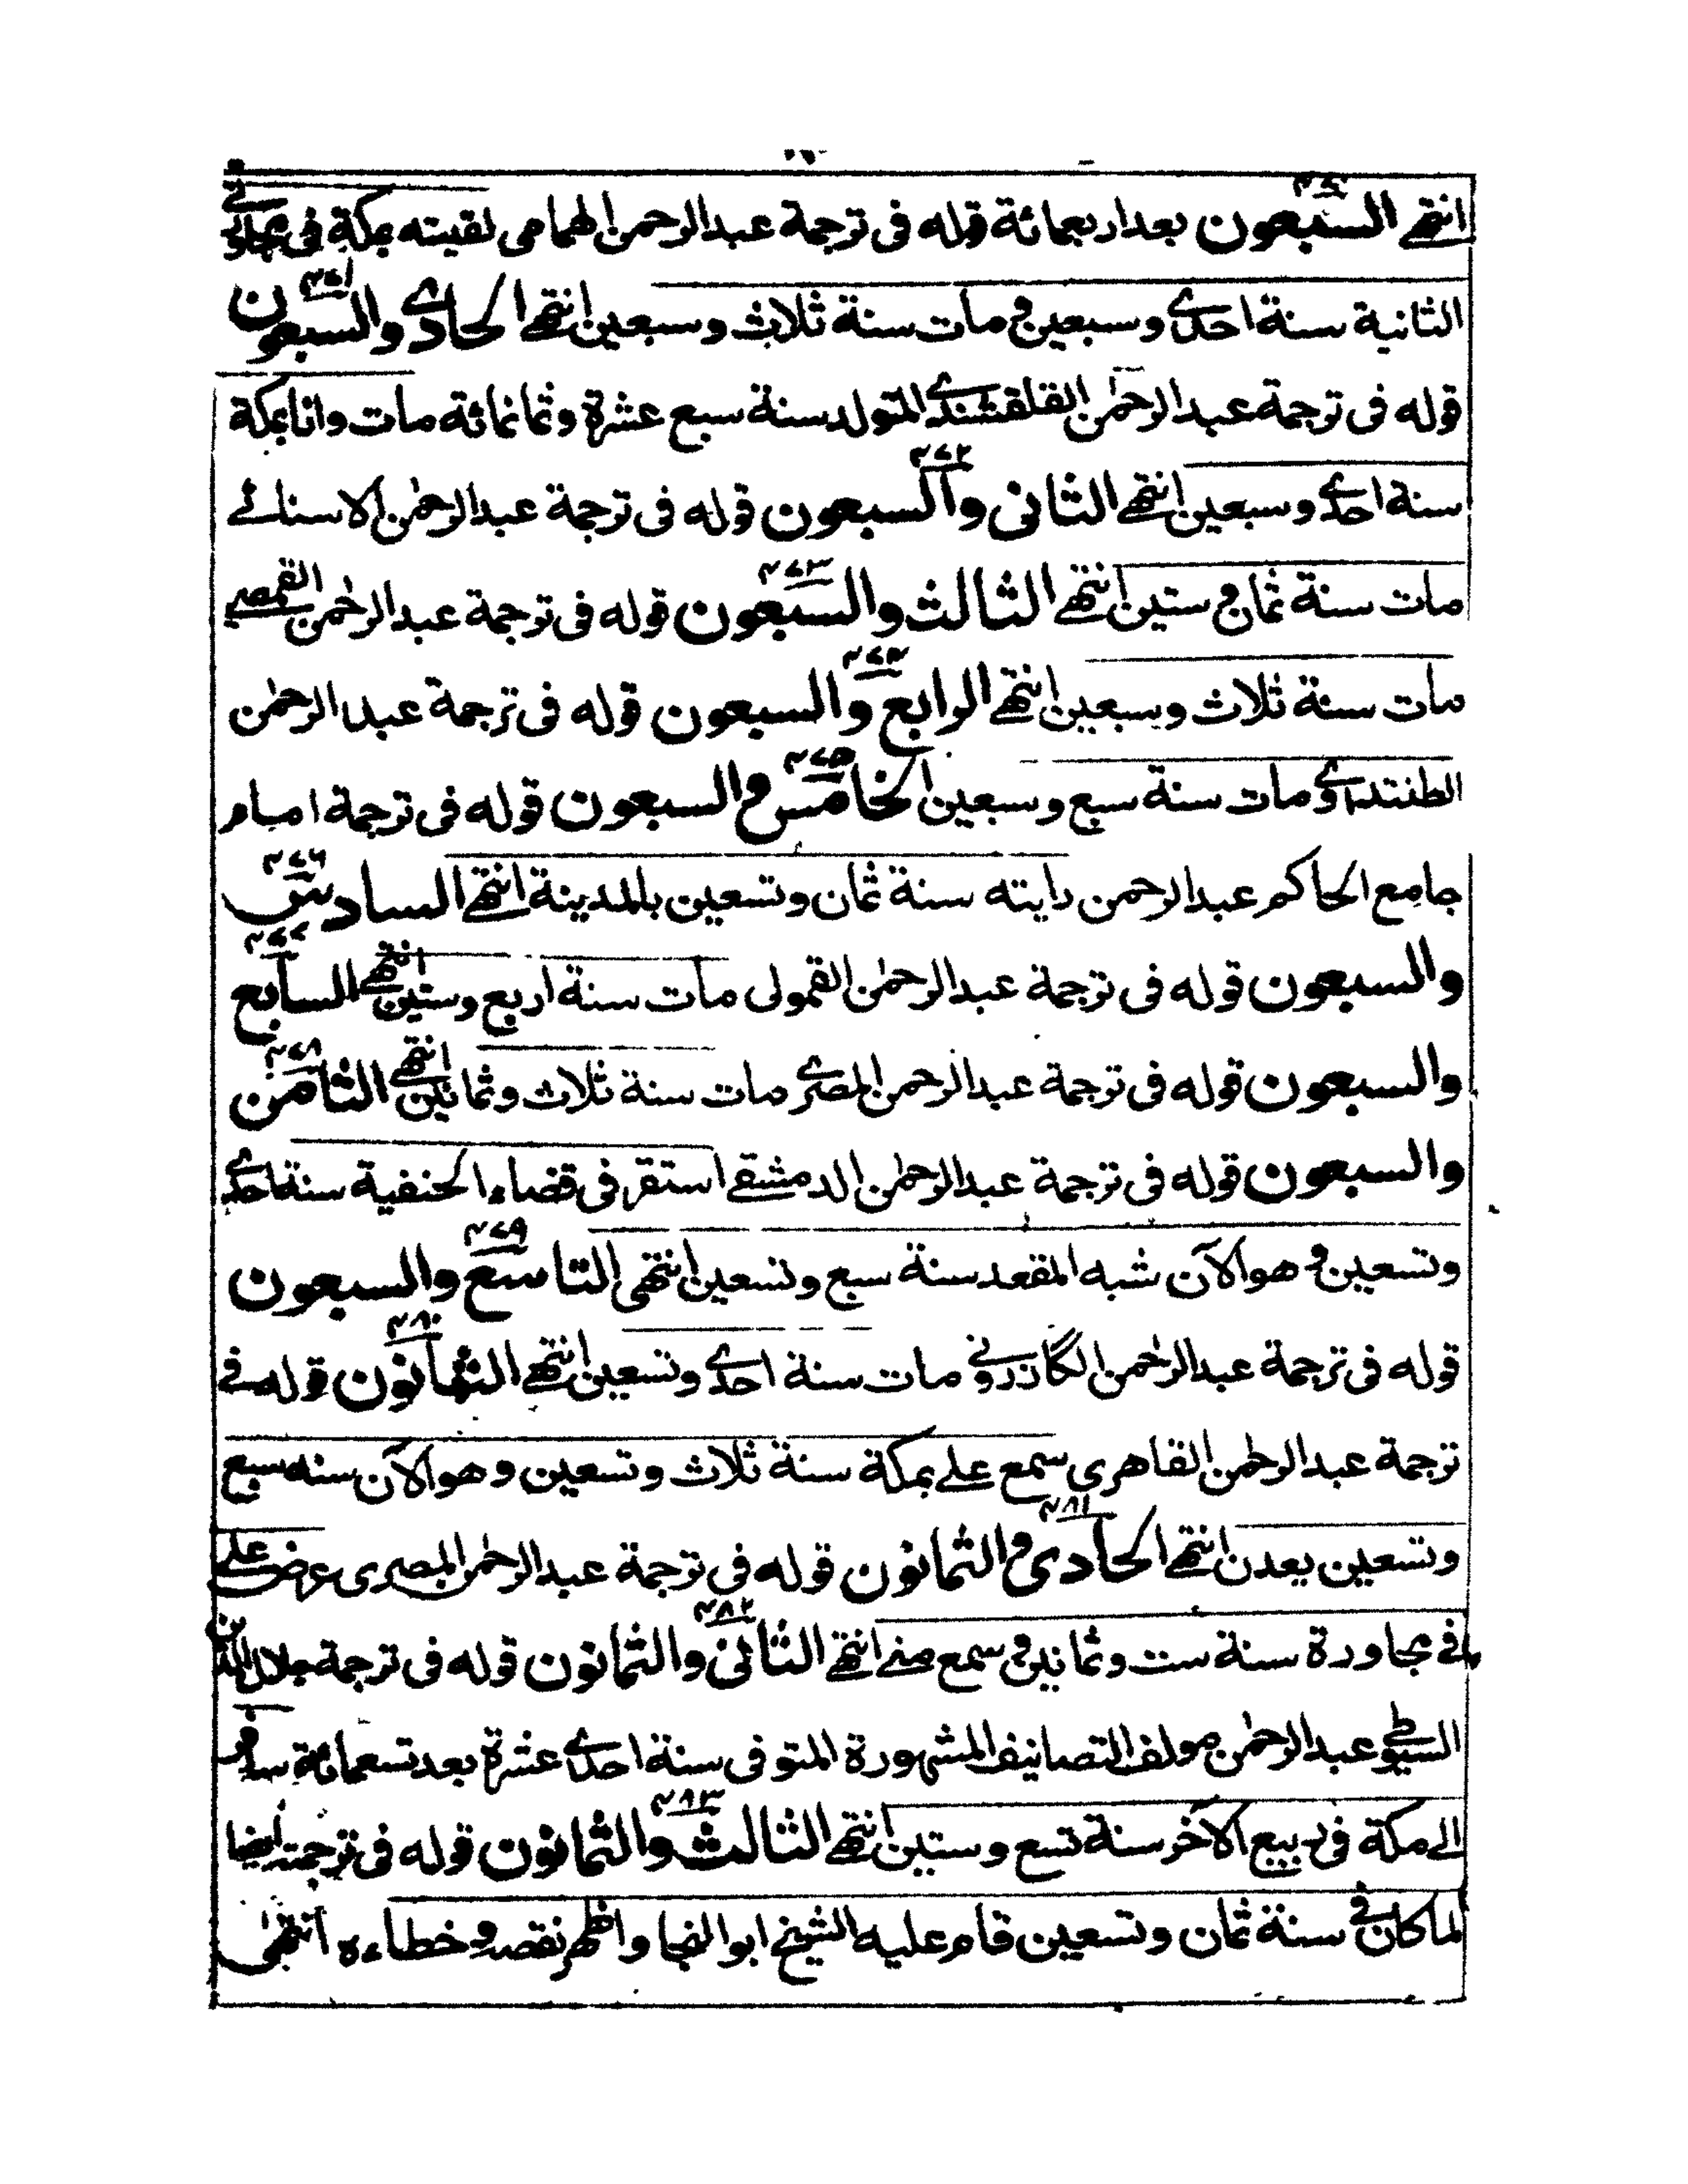 انتهى السبعون بعد اربعمائة قوله فى ترجمة عبد الرحمن الهمامى لقيته بمكة فى مجاورتى
۴۷۰
الثانية سنة احدى وسبعين ومات سنة ثلاث وسبعين انتهى الحادى والسبعون
۴۷۱
قوله فى ترجمة عبد الرحمٰن القلقشندى المتولد سنة سبع عشرة وثمانمائة مات وانا بمكة
سنة احدى وسبعين انتهى الثانى والسبعون قوله فى ترجمة عبد الرحمٰن الاسنائى
۴۷۲
مات سنة ثمان وستين انتهى الثالث والسبعون قوله فى ترجمة عبد الرحٰمن القمصى
۴۷۳
مات سنة ثلاث وسبعين انتهى الرابع والسبعون قوله فى ترجمة عبد الرحمٰن
۴۷۴
الطنتدائى ومات سنة سبع وسبعين الخامس والسبعون قوله فى ترجمة امام
۴۷۵
جامع الحاكم عبد الرحمن رايته سنة ثمان وتسعين بالمدينة انتهى السادس
۴۷۶
والسبعون قوله فى ترجمة عبد الرحمٰن القمولى مات سنة اربع وستين انتهى السابع
۴۷۷
والسبعون قوله فى ترجمة عبد الرحمن المصرى مات سنة ثلاث وثمانين انتهى الثامن
۴۷۸
والسبعون قوله فى ترجمة عبد الرحمٰن الدمشقى استقر فى قضاء الحنفية سنة احدى
وتسعين وهو الآن شبه المقعد سنة سبع وتسعين انتهى التاسع والسبعون
۴۷۹
قوله فى ترجمة عبد الرحٰمن الگازرونى مات سنة احدى وتسعين انتهى الثمانون قوله فى
۴۸۰
ترجمة عبد الرحٰمن القاهرى سمع على بمكة سنة ثلاث وتسعين وهو الآن سنه سبع
وتسعين بعدن انتهى الحادى والثمانون قوله فى ترجمة عبد الرحمٰن المصرى عرض على
۴۸۱
فى مجاورة سنة ست وثمانين وسمع منى انتهى الثانى والثمانون قوله فى ترجمة جلال الدين
۴۸۲
السيوطى عبد الرحمٰن مولف التصانيف المشهورة المتوفى سنة احدى عشرة بعد تسعمائة سافر
الى مكة فى ربيع الآخر سنة تسع وستين انتهى الثالث والثمانون قوله فى ترجمته ايضا
۴۸۳
لما كان فى سنة ثمان وتسعين قام عليه الشيخ ابو النجا واظهر نقصه وخطاءه انتهٰى